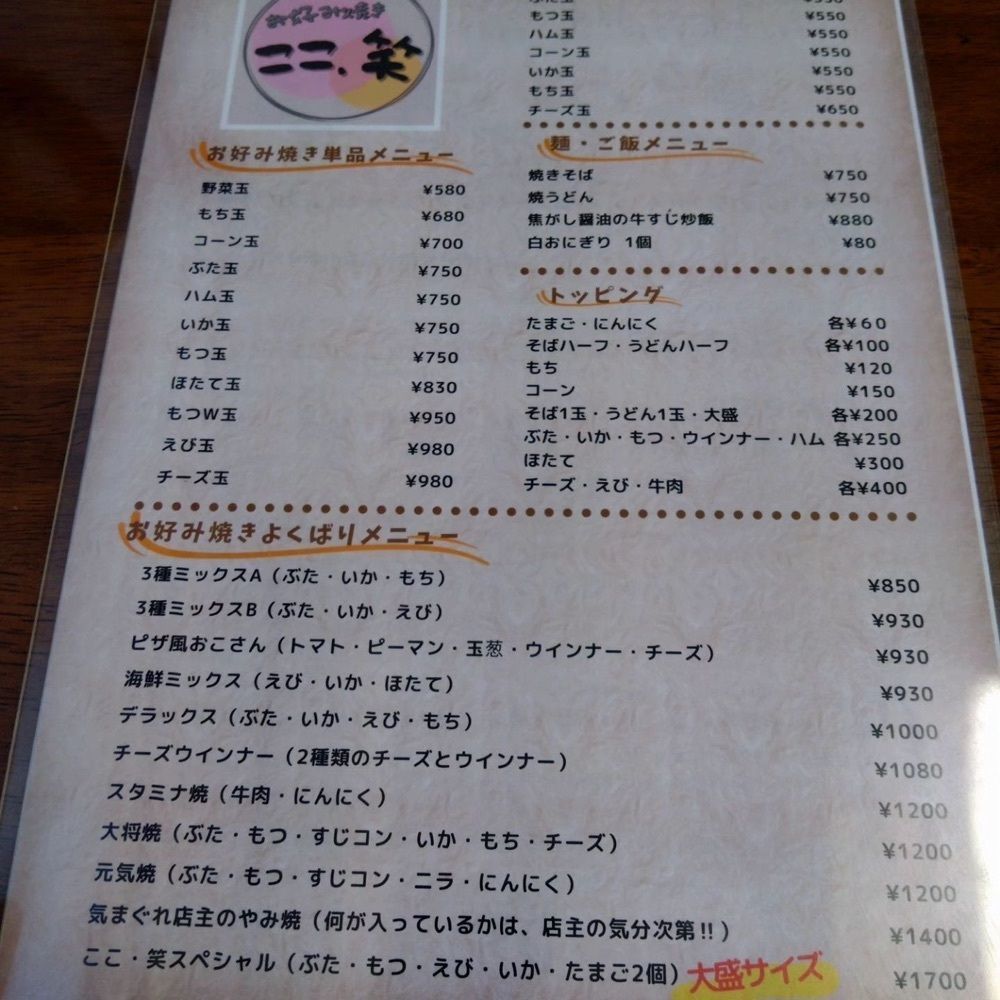 お好み焼き
ここ、笑
¥550
もつ玉 ¥550
ハム玉 ¥550
コーン玉 ¥550
いか玉 ¥550
もち玉 ¥550
チーズ玉 ¥650
お好み焼き単品メニュー
野菜玉 ¥580
もち玉 ¥680
コーン玉 ¥700
ぶた玉 ¥750
ハム玉 ¥750
いか玉 ¥750
もつ玉 ¥750
ほたて玉 ¥830
もつW玉 ¥950
えび玉 ¥980
チーズ玉 ¥980
麺・ご飯メニュー
焼きそば ¥750
焼うどん ¥750
焦がし醤油の牛すじ炒飯 ¥880
白おにぎり 1個 ¥80
トッピング
たまご・にんにく 各¥60
そばハーフ・うどんハーフ 各¥100
もち ¥120
コーン ¥150
そば1玉・うどん1玉・大盛 各¥200
ぶた・いか・もつ・ウインナー・ハム 各¥250
ほたて ¥300
チーズ・えび・牛肉 各¥400
お好み焼きよくばりメニュー
3種ミックスA（ぶた・いか・もち） ¥850
3種ミックスB（ぶた・いか・えび） ¥930
ピザ風おこさん（トマト・ピーマン・玉葱・ウインナー・チーズ） ¥930
海鮮ミックス（えび・いか・ほたて） ¥930
デラックス（ぶた・いか・えび・もち） ¥1000
チーズウインナー（2種類のチーズとウインナー） ¥1080
スタミナ焼（牛肉・にんにく） ¥1200
大将焼（ぶた・もつ・すじコン・いか・もち・チーズ） ¥1200
元気焼（ぶた・もつ・すじコン・ニラ・にんにく） ¥1200
気まぐれ店主のやみ焼（何が入っているかは、店主の気分次第!!） ¥1400
ここ・笑スペシャル（ぶた・もつ・えび・いか・たまご2個） 大盛サイズ ¥1700